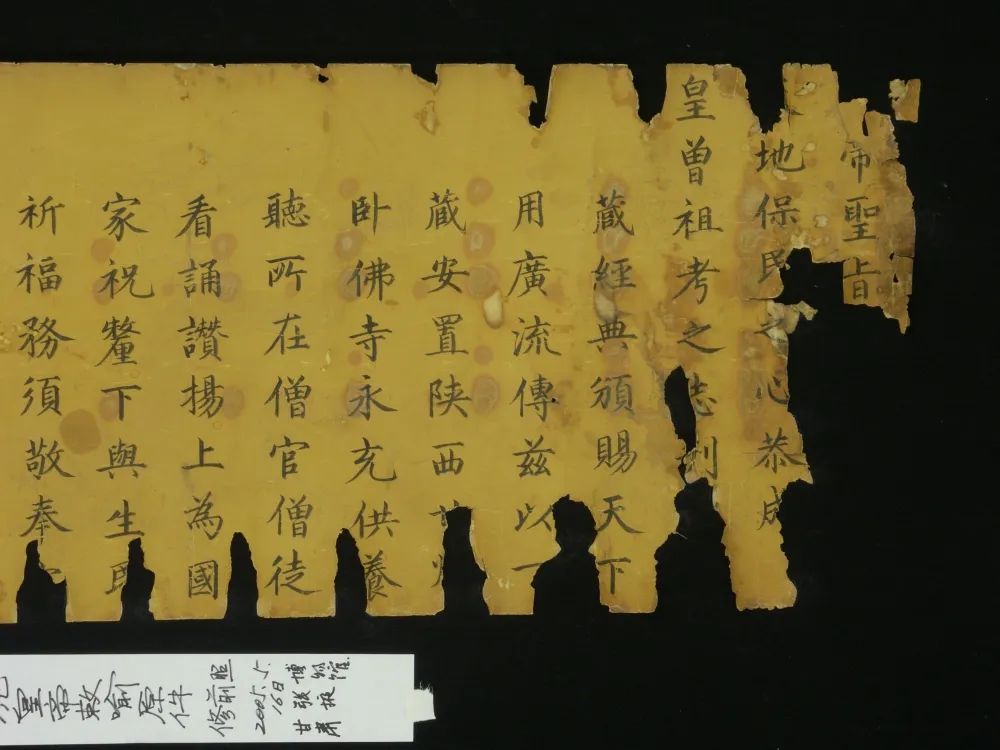 帝聖旨
地保民之心恭成
皇曾祖考之志刊
藏經典頒賜天下
用廣流傳茲以一
藏安置陝西
卧佛寺永充供養
聽所在僧官僧徒
看誦讚揚上為國
家祝釐下與生民
祈福務須敬奉
皇帝敕喻原件
修前照
2005.5.
16日